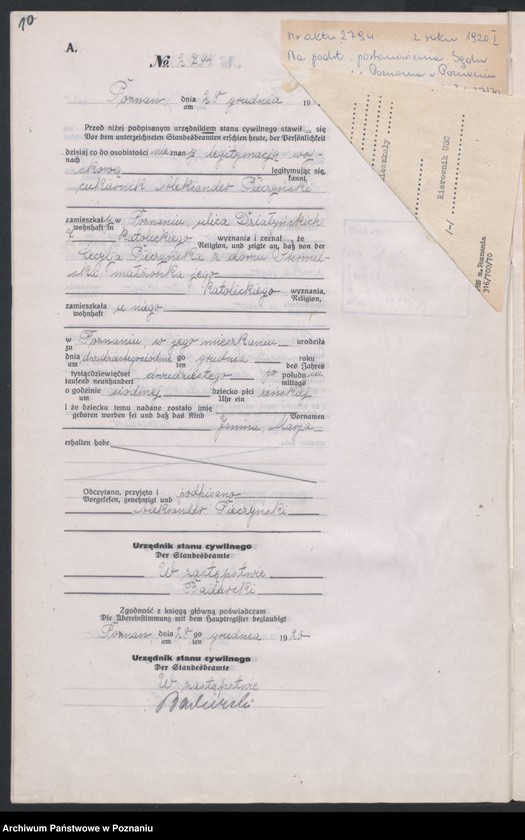 10
A.
nr aktu 2794 z roku 1920 I
Na podst. postanowienia Sądu
Poznania w Poznaniu
№ 2794
Poznań dnia 28 grudnia 19
am
Przed niżej podpisanym urzędnikiem stanu cywilnego stawił się
Vor dem unterzeichneten Standesbeamten erschien heute, der Persönlichkeit
dzisiaj co do osobistości nie znany legitymacją woj-
nach
skową legitymując się,
kannt,
cukiernik Aleksander Pieczyński
zamieszkały w Poznaniu, ulica Działyńskich
wohnhaft in
katolickiego wyznania i zeznał, że
Religion, und zeigte an, daß von der
Cecylja Pieczyńska z domu
małżonka jego
katolickiego wyznania,
Religion,
zamieszkała u niego
wohnhaft
w Poznaniu, w jego mieszkaniu urodziła
zu
dnia dwudziestegosiódme go grudnia roku
am ten des Jahres
tysiącdziewięćset dwudziestego po południu
tausend neunhundert mittags
o godzinie siódmej dziecko płci żeńskiej
um Uhr ein
i że dziecku temu nadane zostało imię
geworden sei und daß das Kind Vornamen
Janina, Marja
erhalten habe
Odczytano, przyjęto i podpisano
Vorgelesen, genehmigt und
Aleksander Pieczyński
Urzędnik stanu cywilnego
Der Standesbeamte
W zastępstwie
Zgodność z księgą główną poświadczam
Die Übereinstimmung mit dem Hauptregister beglaubigt
Poznań dnia 28 go grudnia 1920
am ten
Urzędnik stanu cywilnego
Der Standesbeamte
W zastępstwie
Kierownik USC
/-/
m. Poznania
316/T00/70
Archiwum Państwowe w Poznaniu